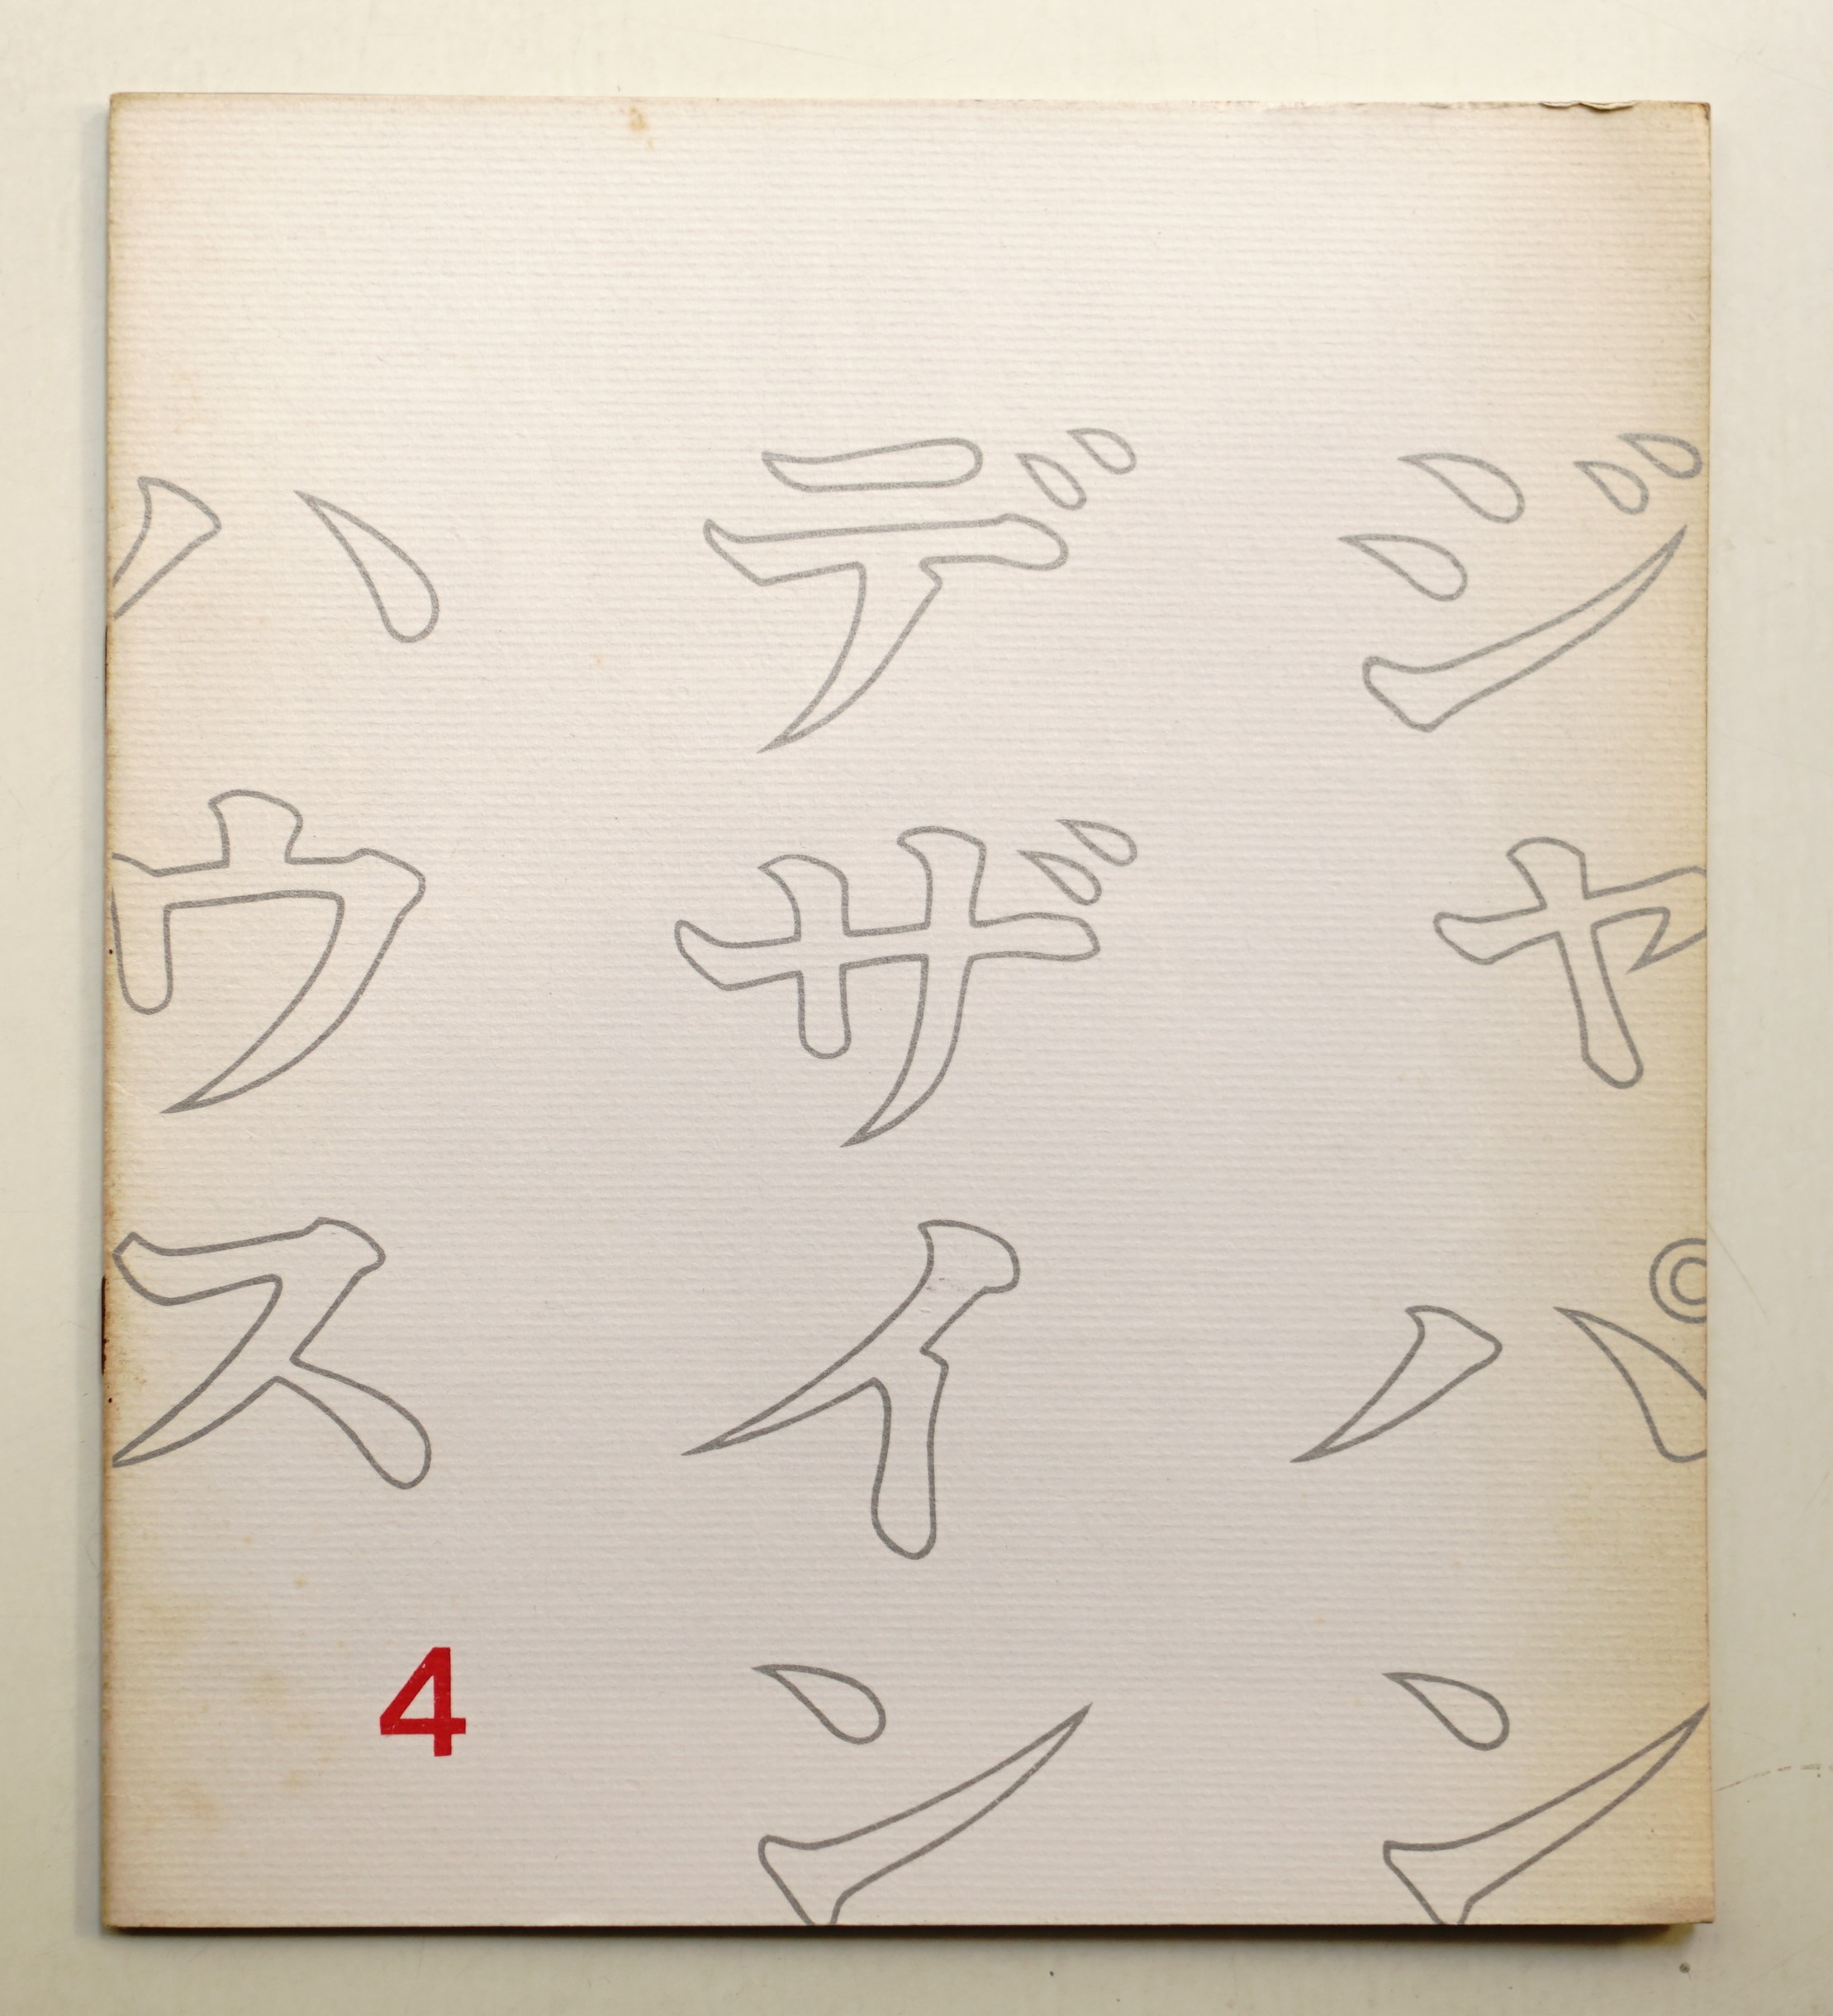 ジャパン
デザイン
ハウス
4